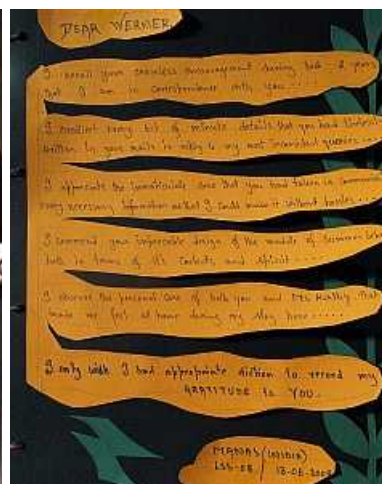 DEAR WERNER,
I recall your ceaseless encouragement during last 2 years
that I am in correspondence with you....
I recollect every bit of minute details that you had
written in your mails in reply to my most inconsistent queries....
I appreciate the care that you had taken in
every necessary information so that I could make it without hassles....
I commend your impeccable design of the module of Summer
both in terms of it's contents and spirit....
I the personal care of both you and Mrs that
made me feel at home during my stay here.....
I only wish I had appropriate diction to record my
GRATITUDE to YOU.
MANAS (INDIA)